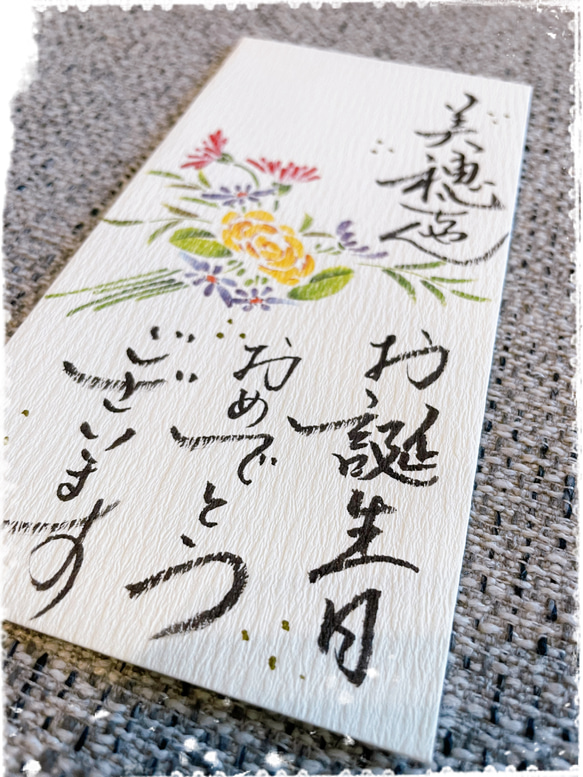 美穂さん
お誕生日
おめでとう
ございます